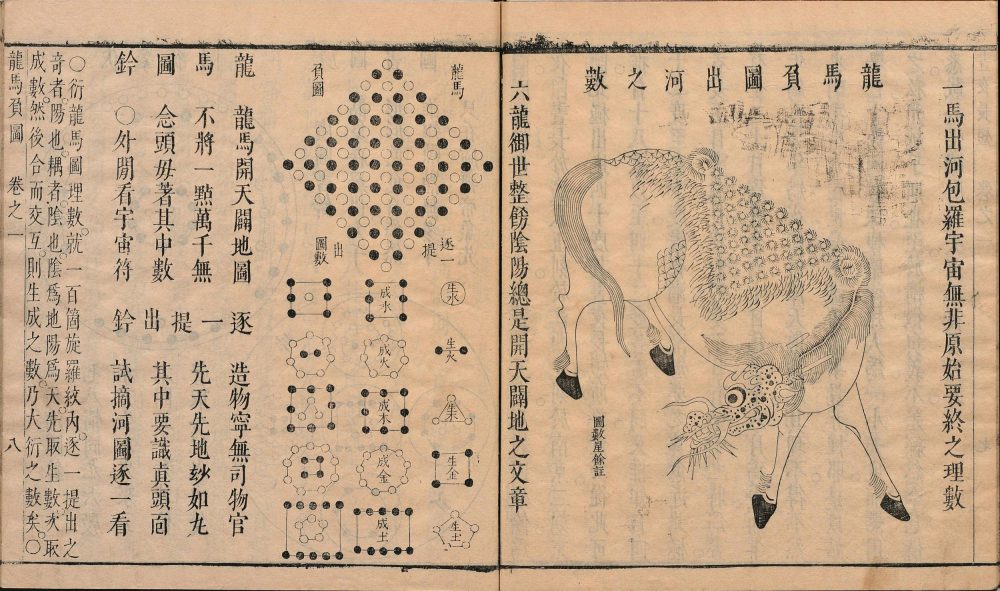 龍馬負圖出河之數
一馬出河包羅宇宙無非原始要終之理數
圖數星餘註
六龍御世整飭陰陽總是開天闢地之文章
龍馬
負圖
逐一
提
出
圖數
生水
成水
生火
成火
生木
成木
生金
成金
生土
成土
龍馬圖鈐
龍馬開天闢地圖
不將一點萬千無
念頭毋著其中數
○外閒看宇宙符
逐一提出鈐
造物寧無司物官
先天先地玅如丸
其中要識真頭面
試摘河圖逐一看
○衍龍馬圖理數就一百箇旋羅紋內逐一提出之
奇者陽也耦者陰也陰爲地陽爲天先取生數次取
成數然後合而交互則生成之數乃大衍之數矣○
龍馬負圖 卷之一 八